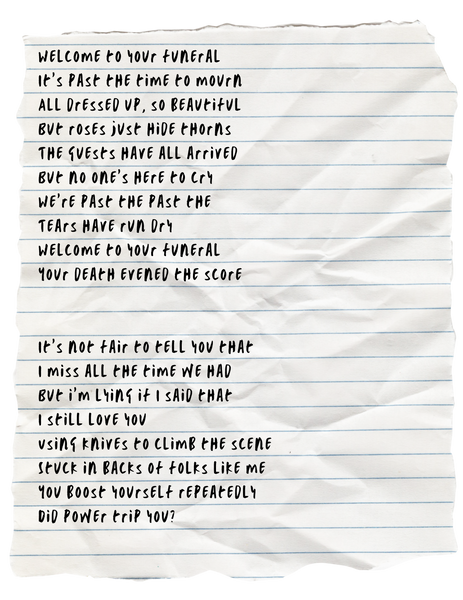 WELCOME to YOUR FUNERAL
It's PAst tHE time to mourn
ALL DrESSED UP, so BEAUtifUL
But roses just HiDE tHorns
THE GUESts HAVE ALL ArrivED
But no onE's HErE to Cry
WE'rE PAst tHE PAst tHE
TEArs HAVE rUn Dry
WELCOME to YOUR FUNERAL
YOUR DEAtH EVEnED tHE score

It's not fAir to tELL YOU tHAt
I miss ALL tHE time WE HAD
But i'm LYinG if I sAiD tHAt
I still LOVE YOU
UsinG Knives to CLimB tHE SCEnE
StuCK in BACKs of foLKs LiKE mE
YOU Boost YoursELf rEPEAtEDLY
DiD PoWEr triP YOU?